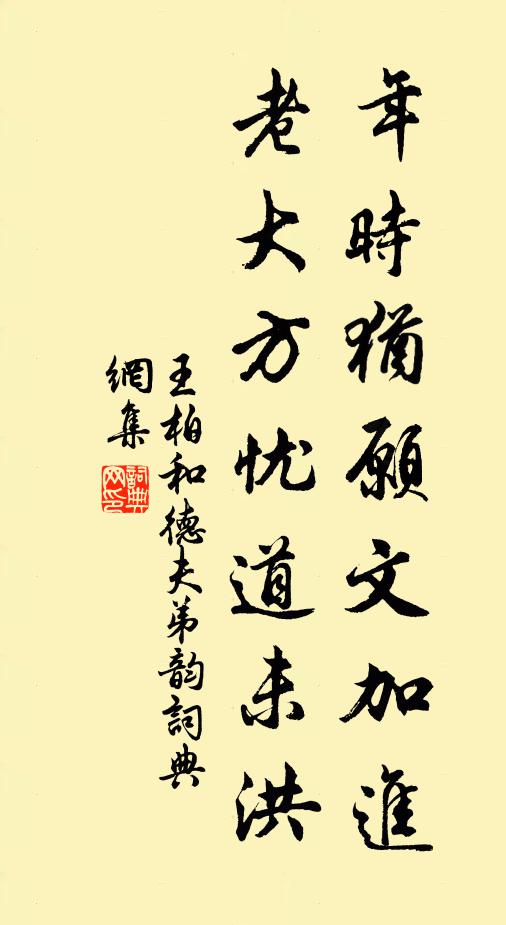 年時猶願文加進
老大方忧道未洪
王柏和德夫弟韵詞典
網集
詞典網印